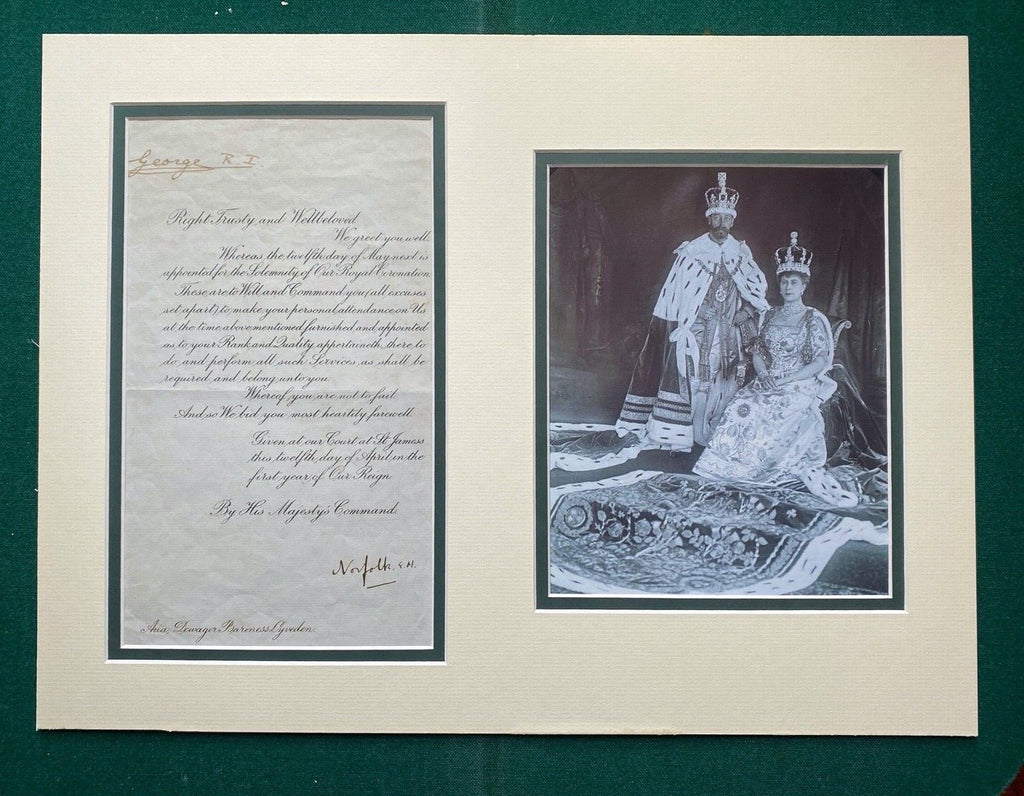 George R.I.
Right Trusty and Wellbeloved
We greet you well.
Whereas the twelfth day of May next is
appointed for the Solemnity of Our Royal Coronation
These are to Will and Command you (all excuses
set apart) to make your personal attendance on Us
at the time above mentioned furnished and appointed
as to your Rank and Quality appertaineth, there to
do and perform all such Services as shall be
required and belong unto you
Whereof you are not to fail
And so We bid you most heartily farewell
Given at our Court at St James's
this twelfth day of April in the
first year of Our Reign
By His Majesty's Command.
Norfolk, E.M.
Dowager Baroness Lyveden.